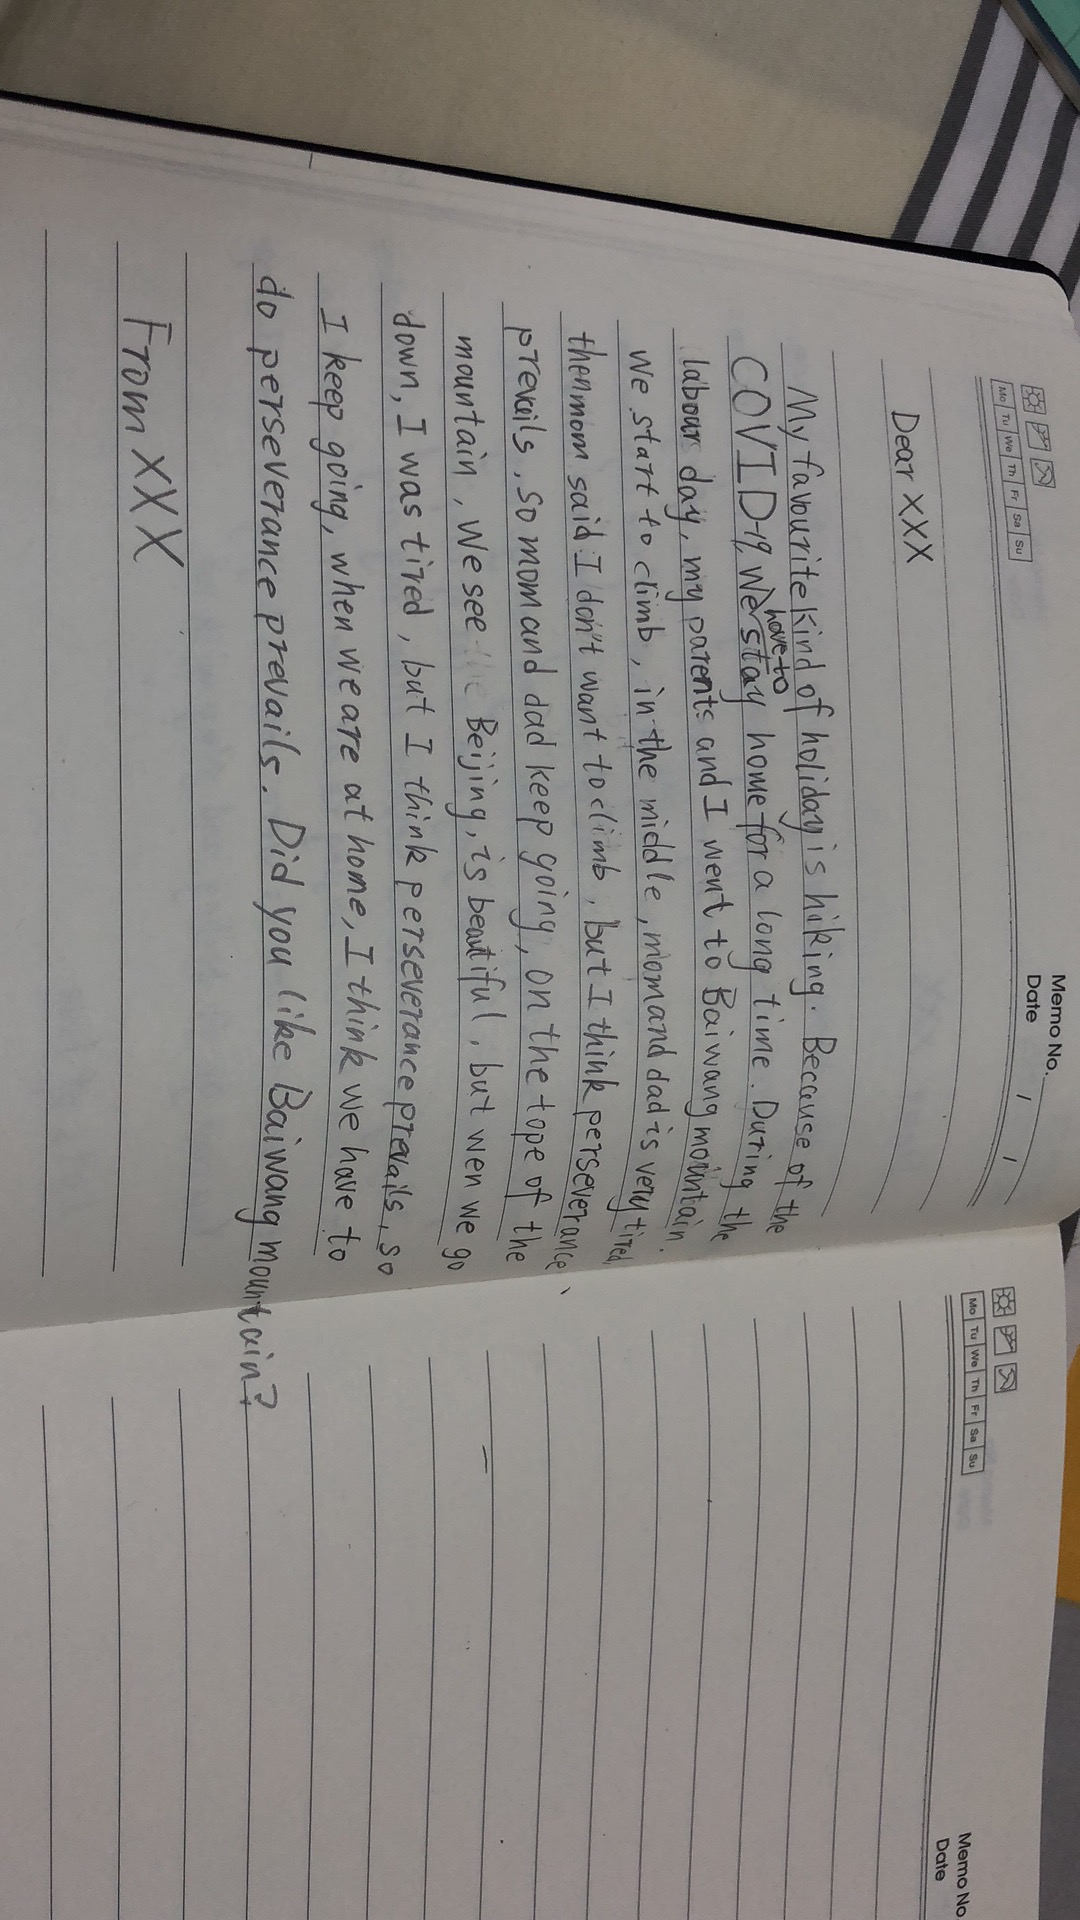 Memo No.
Mo Tu We Th Fr Sa Su
Date / /
Dear XXX
My favourite kind of holiday is hiking. Because of the
COVID-19, We have to stay home for a long time. During the
labour day, my parents and I went to Baiwang mountain.
We start to climb, in the middle, mom and dad is very tired,
then mom said: I don't want to climb, but I think perseverance
prevails, so mom and dad keep going, on the tope of the
mountain, We see the Beijing, is beautiful, but wen we go
down, I was tired, but I think perseverance prevails, so
I keep going, when we are at home, I think we have to
do perseverance prevails. Did you like Baiwang mountain?
From XXX
Memo No
Mo Tu We Th Fr Sa Su
Date